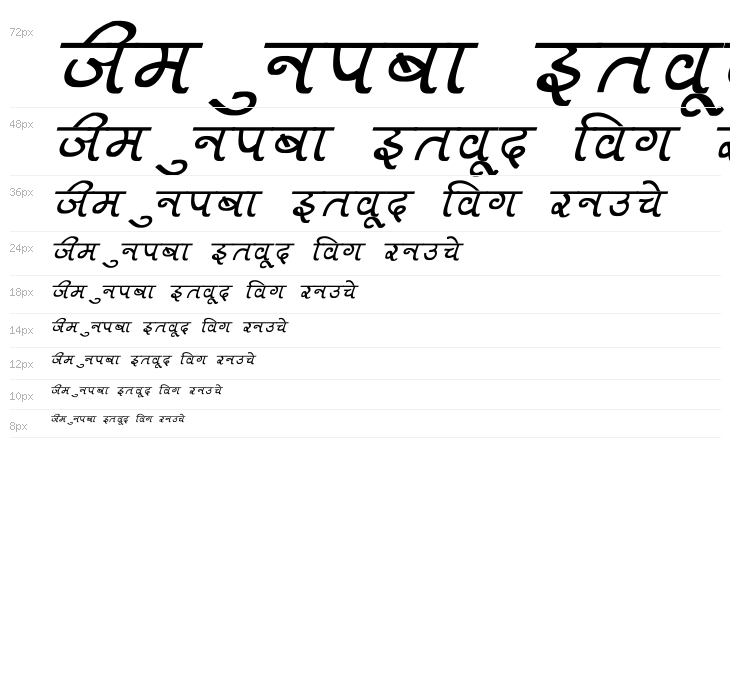 72px जीम ुनपबा इतवू
48px जीम ुनपबा इतवूद विग
36px जीम ुनपबा इतवूद विग रनउचे
24px जीम ुनपबा इतवूद विग रनउचे
18px जीम ुनपबा इतवूद विग रनउचे
14px जीम ुनपबा इतवूद विग रनउचे
12px जीम ुनपबा इतवूद विग रनउचे
10px जीम ुनपबा इतवूद विग रनउचे
8px जीम ुनपबा इतवूद विग रनउचे